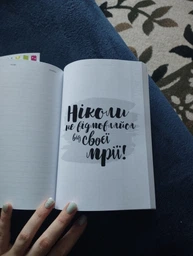 Ніколи
не відмовляйся
від своєї
мрії!